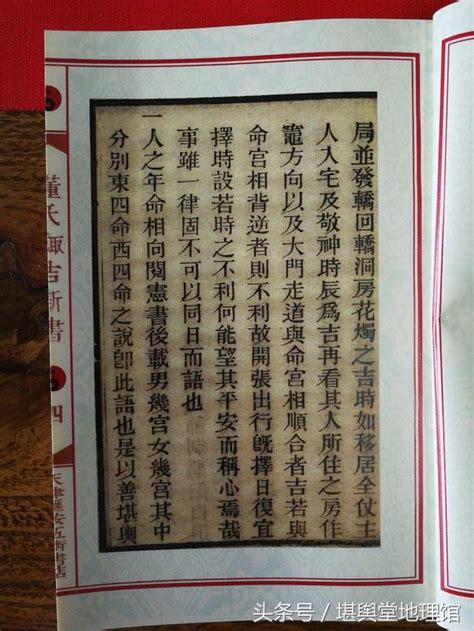 局並發轎回轎洞房花燭之吉時如移居全仗主
人入宅及敬神時辰爲吉再看其人所住之房作
竈方向以及大門走道與命宫相順合者吉若與
命宫相背逆者則不利故開張出行旣擇日復宜
擇時設若時之不利何能望其平安而稱心焉哉
事雖一律固不可以同日而語也
一人之年命相向閱憲書後載男幾宫女幾宫其中
分別東四命西四命之說卽此語也是以善堪輿
董氏諏吉新書
四
天津匯安五術書店
头条号/堪舆堂地理馆